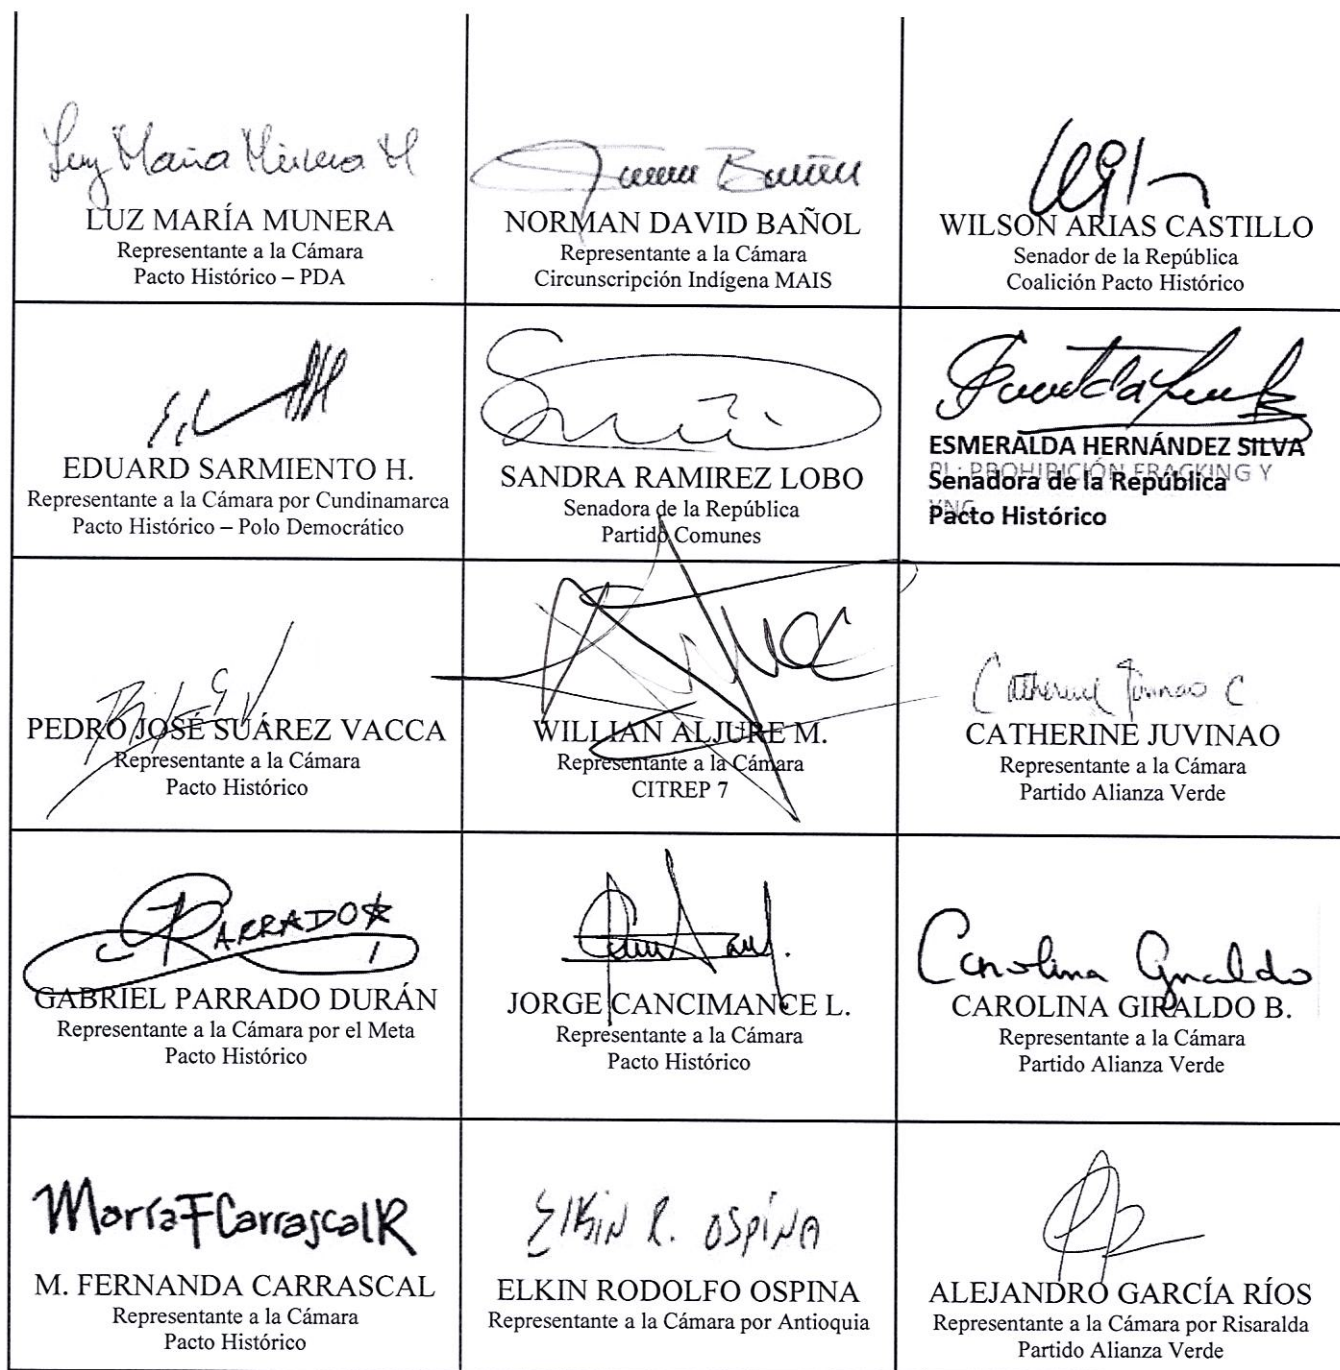 Luz María Múnera M
LUZ MARÍA MUNERA
Representante a la Cámara
Pacto Histórico – PDA
NORMAN DAVID BAÑOL
Representante a la Cámara
Circunscripción Indígena MAIS
WILSON ARIAS CASTILLO
Senador de la República
Coalición Pacto Histórico
EDUARD SARMIENTO H.
Representante a la Cámara por Cundinamarca
Pacto Histórico – Polo Democrático
SANDRA RAMIREZ LOBO
Senadora de la República
Partido Comunes
ESMERALDA HERNÁNDEZ SILVA
PL: PROHIBICIÓN FRACKING Y
Senadora de la República
YNC
Pacto Histórico
PEDRO JOSÉ SUÁREZ VACCA
Representante a la Cámara
Pacto Histórico
WILLIAN ALJURE M.
Representante a la Cámara
CITREP 7
Catherine Juvinao C
CATHERINE JUVINAO
Representante a la Cámara
Partido Alianza Verde
PARRADO
GABRIEL PARRADO DURÁN
Representante a la Cámara por el Meta
Pacto Histórico
JORGE CANCIMANCE L.
Representante a la Cámara
Pacto Histórico
Carolina Giraldo
CAROLINA GIRALDO B.
Representante a la Cámara
Partido Alianza Verde
María F Carrascal R
M. FERNANDA CARRASCAL
Representante a la Cámara
Pacto Histórico
Elkin R. Ospina
ELKIN RODOLFO OSPINA
Representante a la Cámara por Antioquia
ALEJANDRO GARCÍA RÍOS
Representante a la Cámara por Risaralda
Partido Alianza Verde